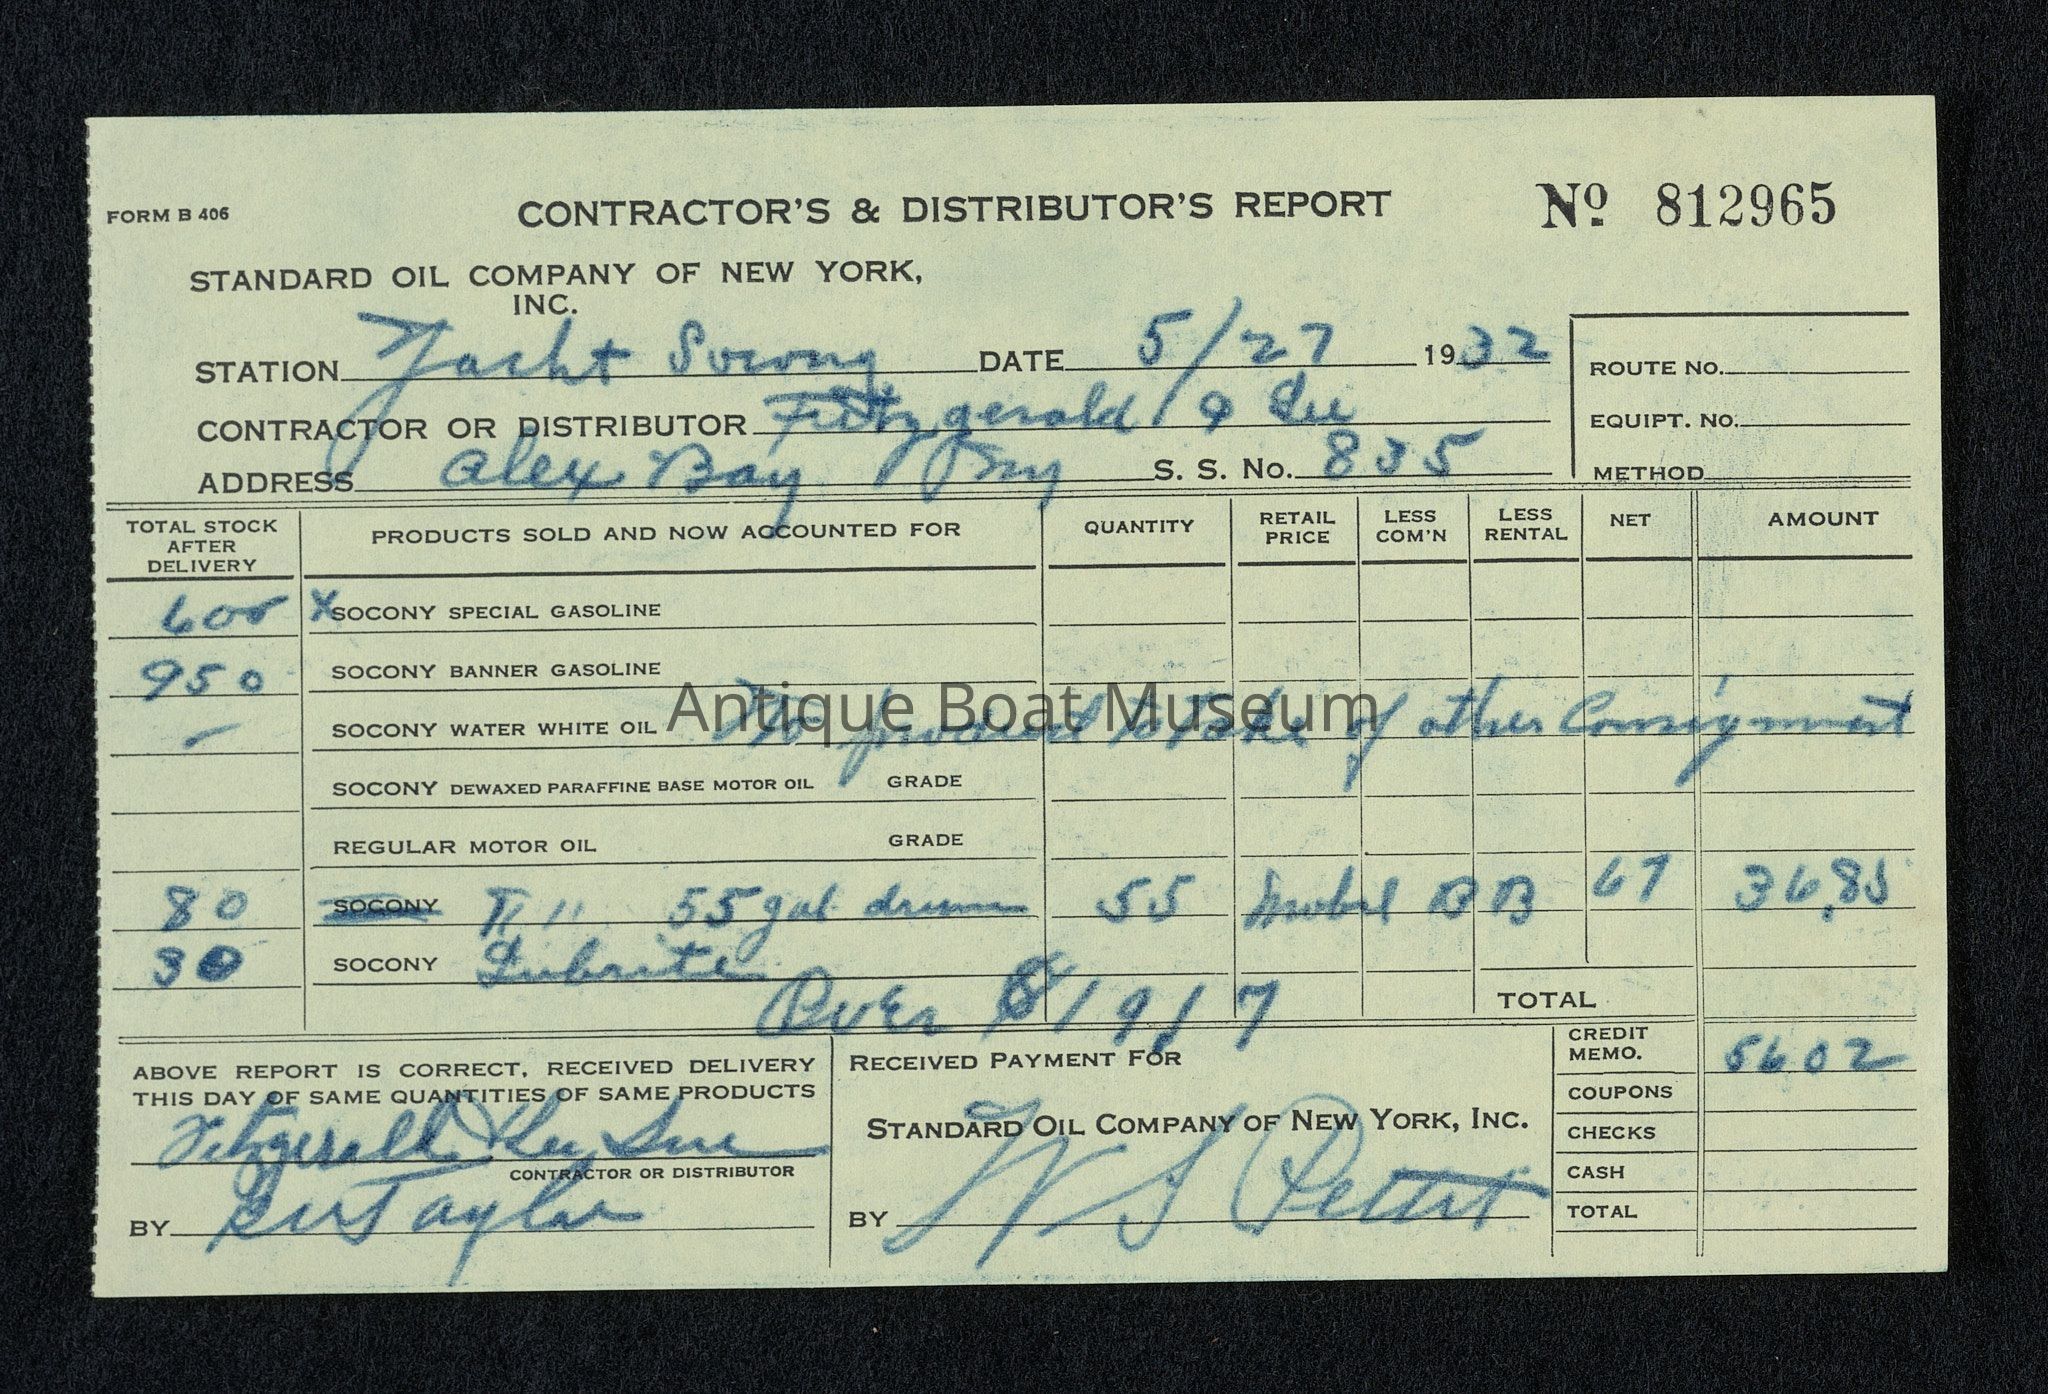 FORM B 406
CONTRACTOR'S & DISTRIBUTOR'S REPORT
Nº 812965
STANDARD OIL COMPANY OF NEW YORK,
INC.
STATION Yacht Socony DATE 5/27 1932
ROUTE NO.
CONTRACTOR OR DISTRIBUTOR Fitzgerald & Lee
EQUIPT. NO.
ADDRESS Alex Bay NY S. S. NO. 835
METHOD
TOTAL STOCK AFTER DELIVERY PRODUCTS SOLD AND NOW ACCOUNTED FOR QUANTITY RETAIL PRICE LESS COM'N LESS RENTAL NET AMOUNT
600 X SOCONY SPECIAL GASOLINE
950 SOCONY BANNER GASOLINE
Antique Boat Museum
- SOCONY WATER WHITE OIL No of other Consignment
SOCONY DEWAXED PARAFFINE BASE MOTOR OIL GRADE
REGULAR MOTOR OIL GRADE
80 SOCONY 55 gal drum 55 Mobil B B 67 36.85
30 SOCONY Lubrite
Over 19.17
TOTAL
CREDIT MEMO. 56 02
ABOVE REPORT IS CORRECT, RECEIVED DELIVERY
THIS DAY OF SAME QUANTITIES OF SAME PRODUCTS
RECEIVED PAYMENT FOR
COUPONS
Fitzgerald & Lee Inc
CONTRACTOR OR DISTRIBUTOR
STANDARD OIL COMPANY OF NEW YORK, INC.
CHECKS
CASH
BY Taylor
BY W S
TOTAL